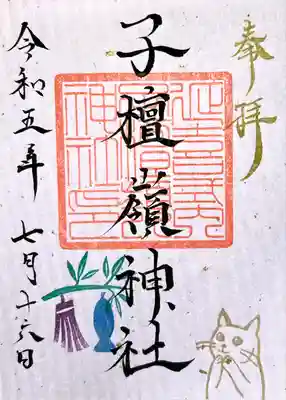 奉拝
子檀嶺神社
令和五年 七月十六日